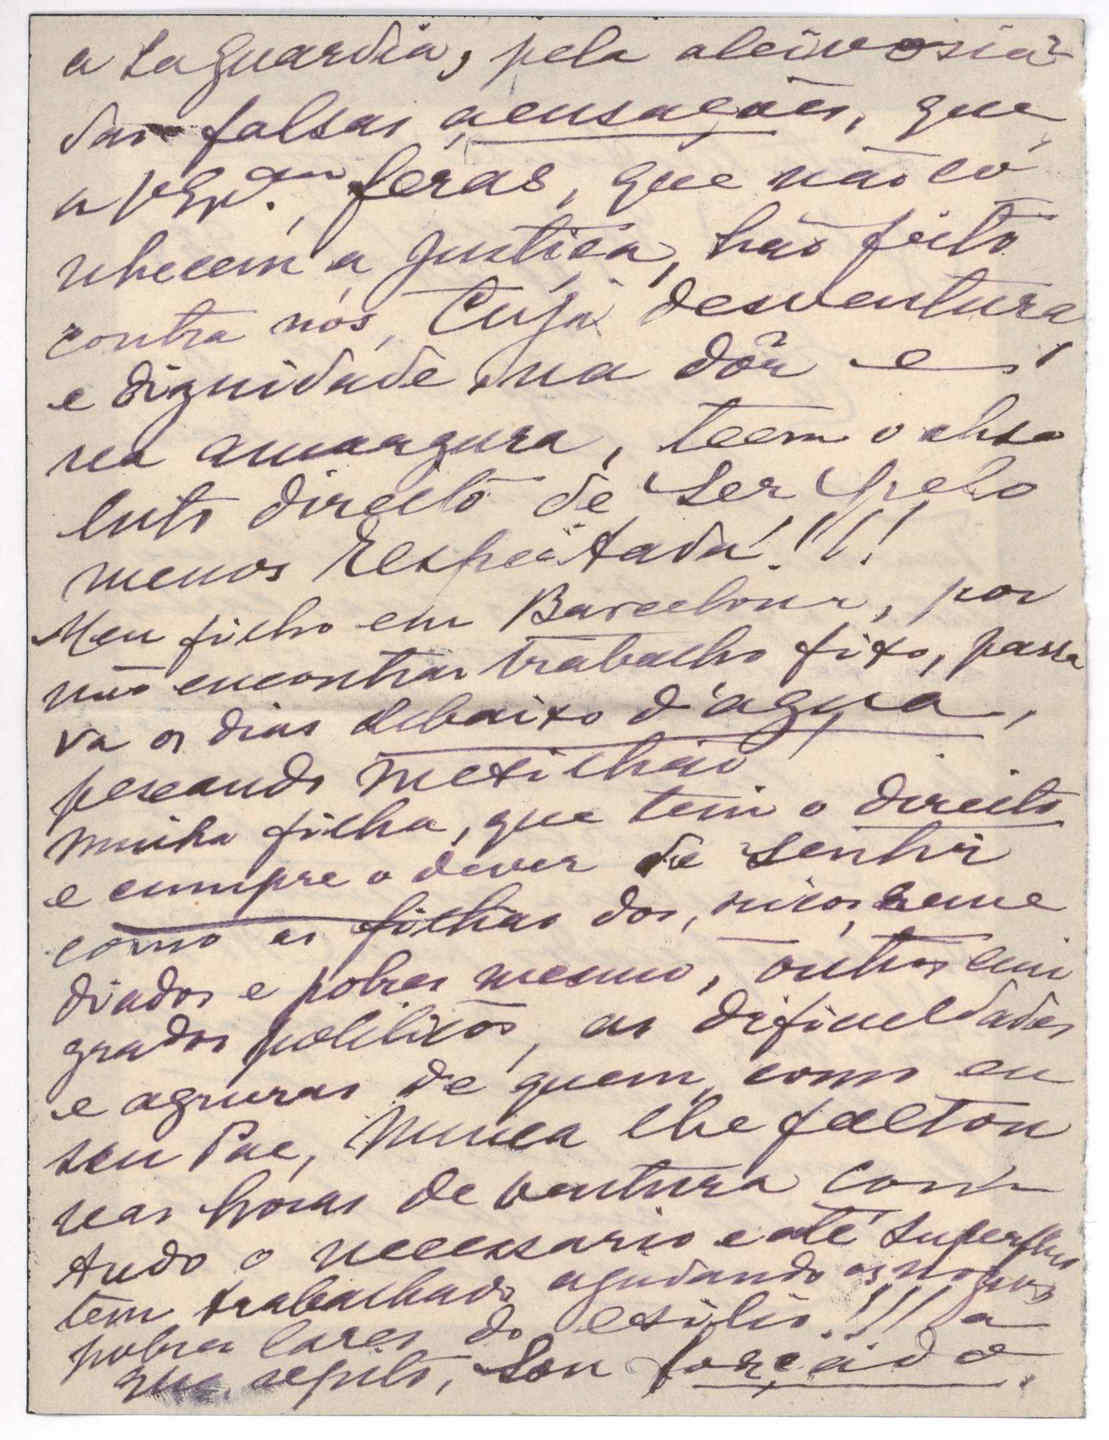 a La Guardia, pela aleivosia
das falsas acusações, que
a feras, que não co
nhecem a Justiça, hão feito
contra nós, Cuja desventura
e dignidade na dôr e
na amargura, teem o abso
luto direito de ser pelo
menos respeitada!!!!
Meu filho em Barcelona, por
não encontrar trabalho fixo, passa
va os dias debaixo d'agua,
pescando mexilhão
Minha filha, que tem o direito
e cumpre o dever de sentir
como as filhas dos, ricos, reme
diados e pobres mesmo, outros emi
grados politicos, as dificuldades
e agruras de quem, como eu
seu Pae, Nunca lhe faltou
nas horas de ventura com
tudo o necessario e até superfluo
tem trabalhado ajudando os nossos
pobres lares do exilio!!! a
que, repito, Sou forçado.